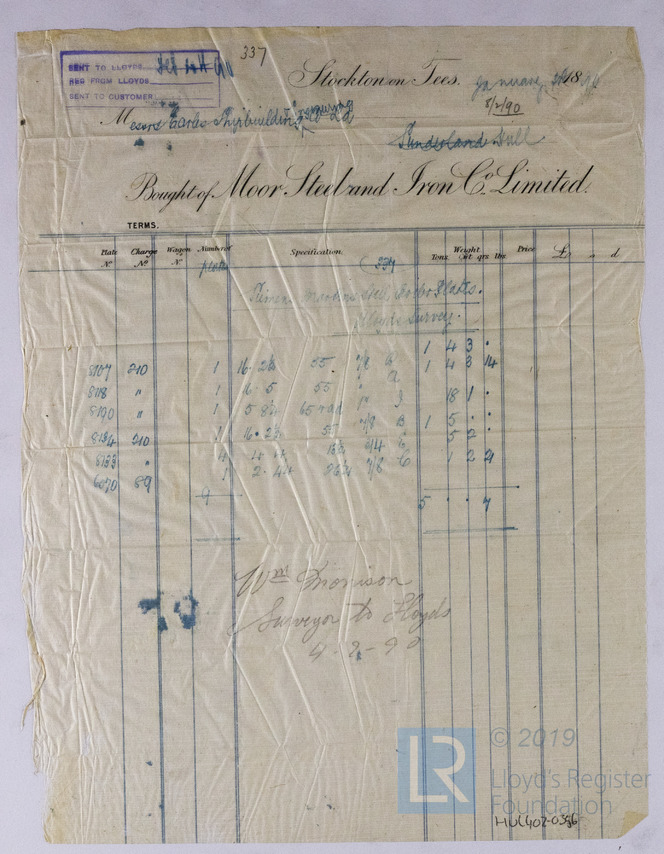 337
SENT TO LLOYDS
REC FROM LLOYDS
SENT TO CUSTOMER
Stockton on Tees. January 18
8/2/90
Messrs Earles Shipbuilding Co Ld
Sunderland Hull
Bought of Moor Steel and Iron Co. Limited.
TERMS.
Plate No. Charge No. Wagon No. Number of plates Specification. Weight Tons Cwt qrs lbs Price £ s d
337
Siemens Martins Steel Boiler Plates.
Lloyds Survey.
1 4 3 "
8107 210 1 16. 55 7/8 B 1 4 3 14
8118 " 1 16 5 55 " A
8190 " 1 5 65 rad 1" J 18 1 "
8184 210 1 16. 55 7/8 B 1 5 "
8133 " 4 3/4 5 2
6070 89 1 2. 7/8 C 1 2 21
9
5 " " 7
Wm Morrison
Surveyor to Lloyds
4-2-90
LR
© 2019
Lloyd's Register
Foundation
HUL402-0356